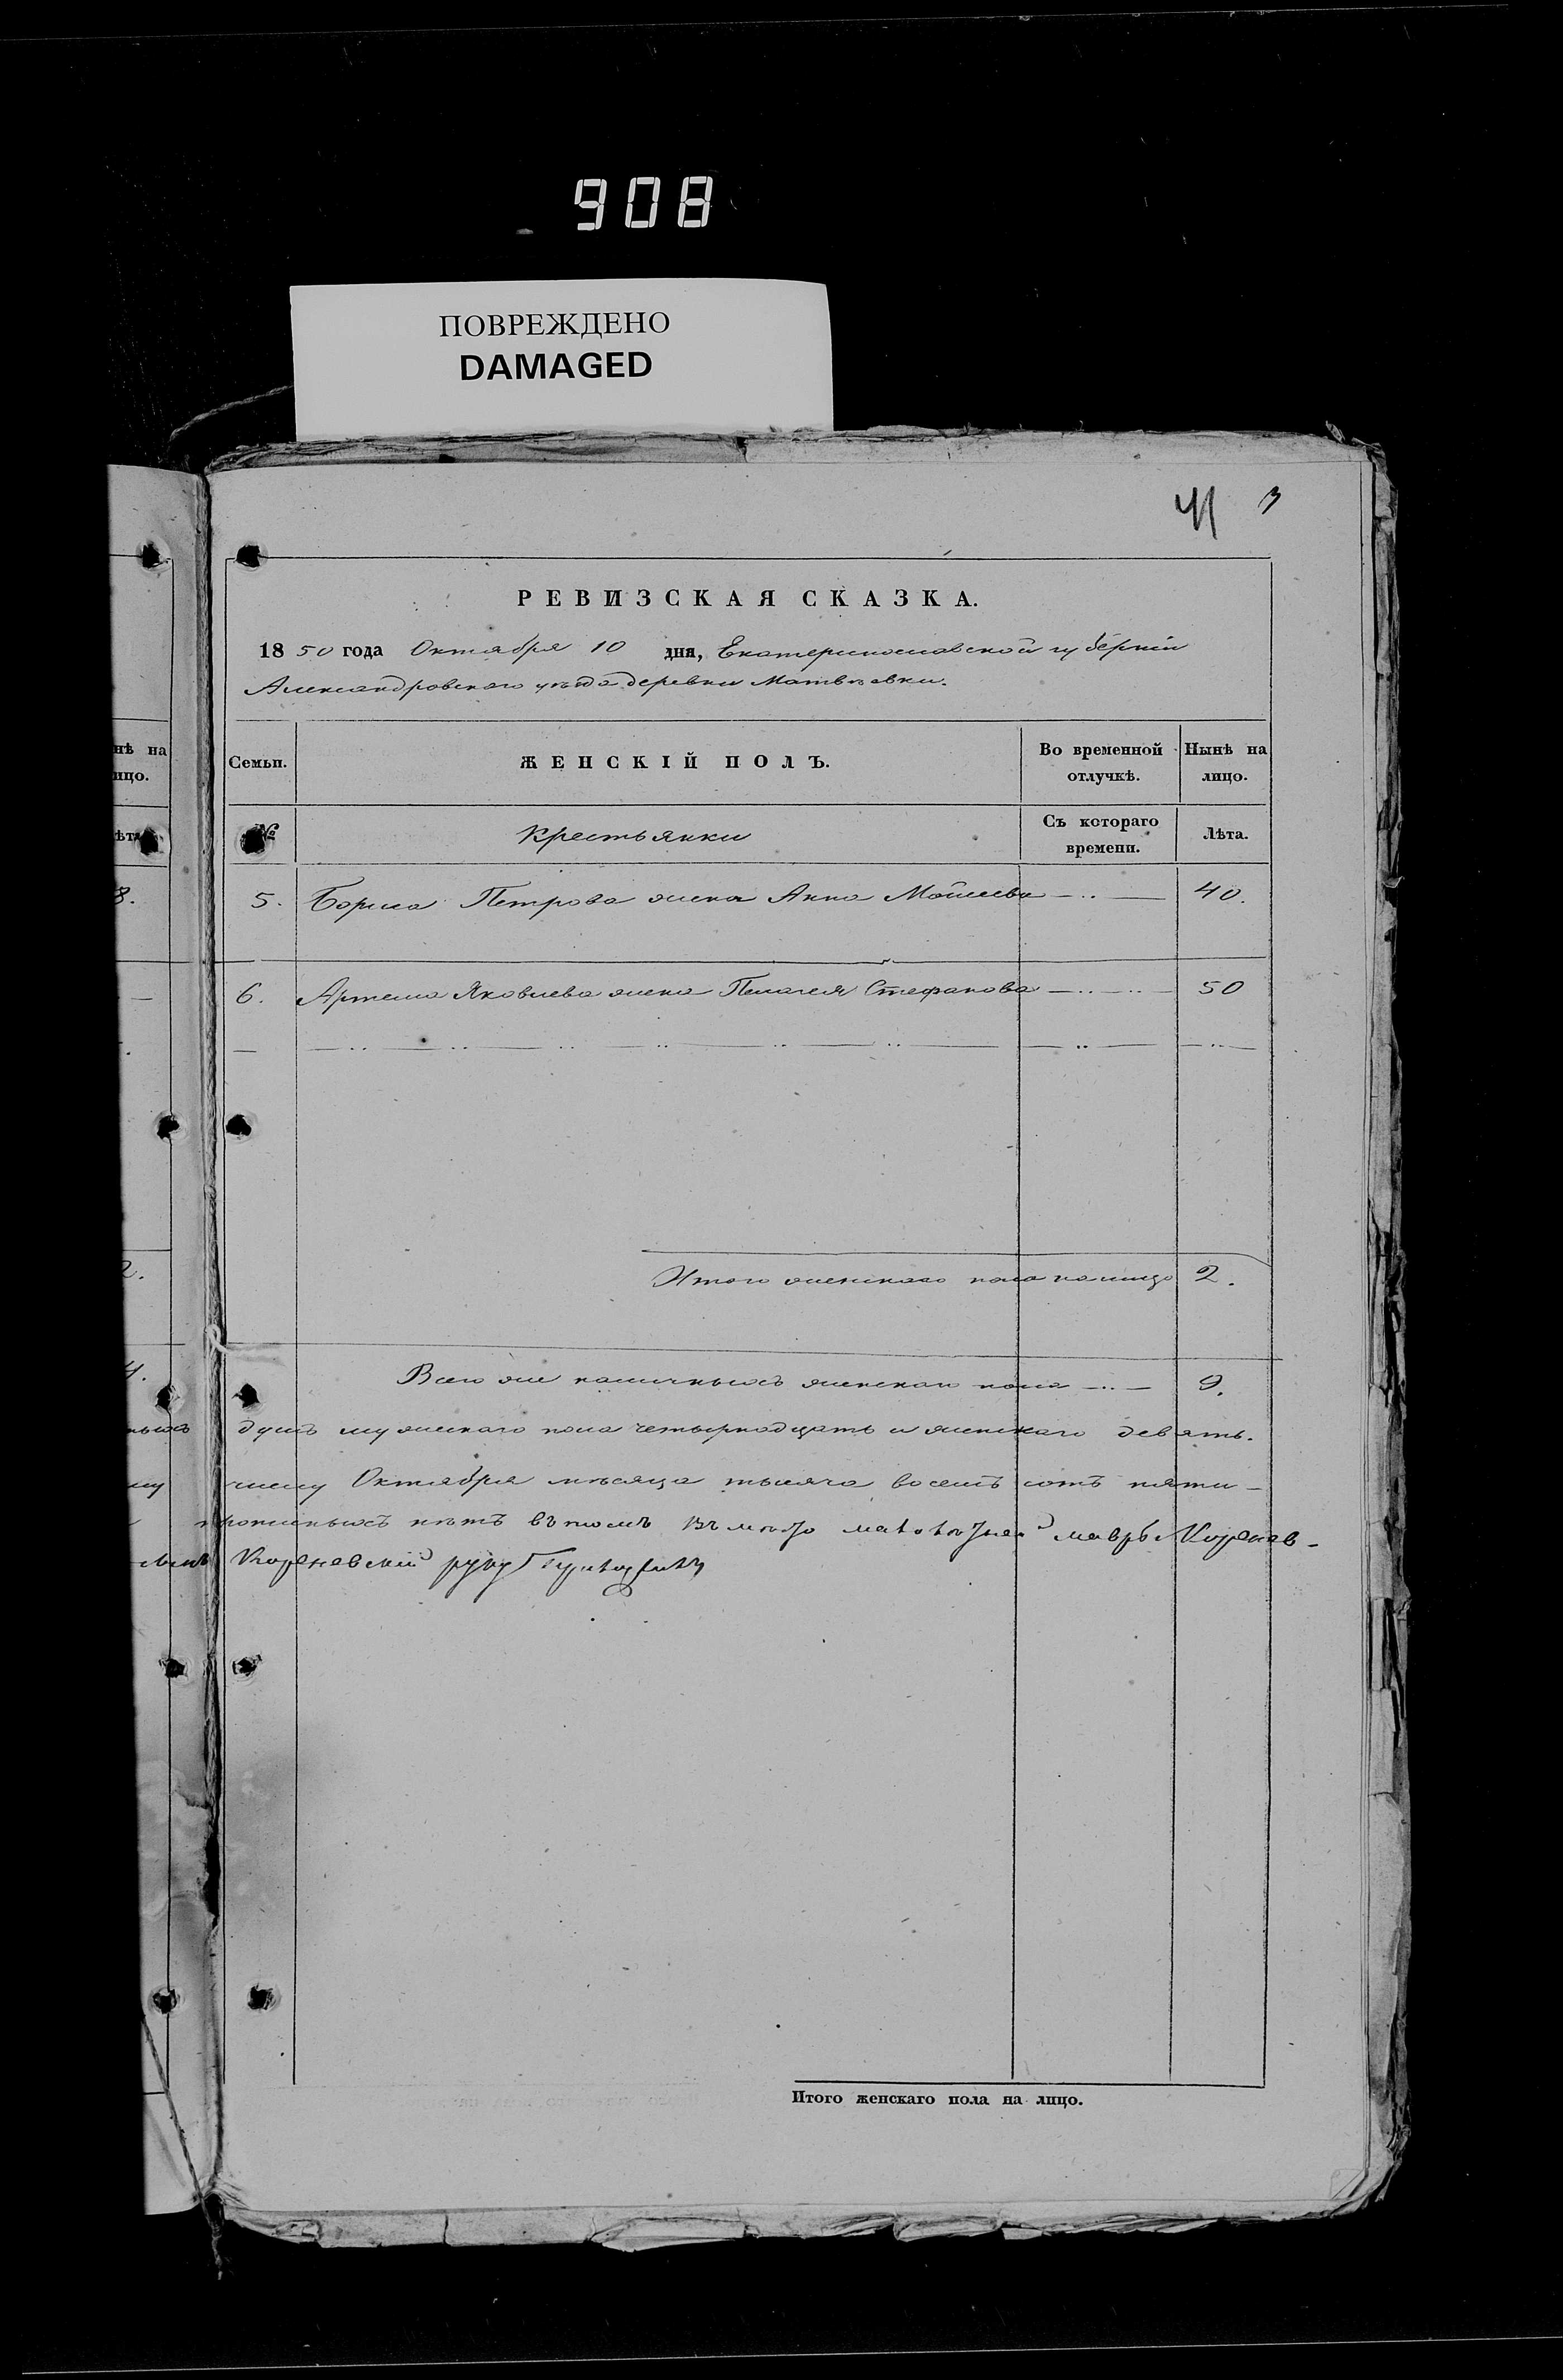 908
ПОВРЕЖДЕНО
DAMAGED
41 3
РЕВИЗСКАЯ СКАЗКА.
1850 года Октября 10 дня, Екатеринославской губерніи
Александровскаго уѣзда деревни Матвѣевки.
нѣ на
ицо.
Семьи.
ЖЕНСКІЙ ПОЛЪ.
Во временной отлучкѣ.
Нынѣ на лицо.
ѣта
№
Крестьянки
Съ котораго времени.
Лѣта.
8.
5. Бориса Петрова жена Анна Моисеева — 40.
6. Артема Яковлева жена Пелагея Стефанова — 50
2.
Итого женскаго пола на лицо 2.
4.
Всего же наличныхъ женскаго пола — 9.
ныхъ душъ мужескаго пола четырнадцать и женскаго девять.
му числу Октября мѣсяца тысяча восемъ сотъ пяти-
прописныхъ нѣтъ въ томъ вмѣсто Мавры Коренев-
Кореневскій руку
Итого женскаго пола на лицо.